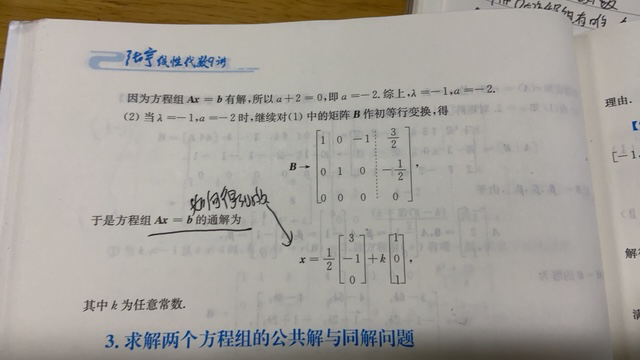 张宇线性代数9讲
因为方程组 Ax = b 有解,所以 a+2=0,即 a=-2. 综上,λ=-1,a=-2.
(2) 当 λ=-1,a=-2 时,继续对(1) 中的矩阵 B 作初等行变换,得
B → [1 0 -1 3/2; 0 1 0 -1/2; 0 0 0 0],
如何得到的
于是方程组 Ax = b 的通解为
x = 1/2 [3; -1; 0] + k [1; 0; 1],
其中 k 为任意常数.
3. 求解两个方程组的公共解与同解问题
理由.